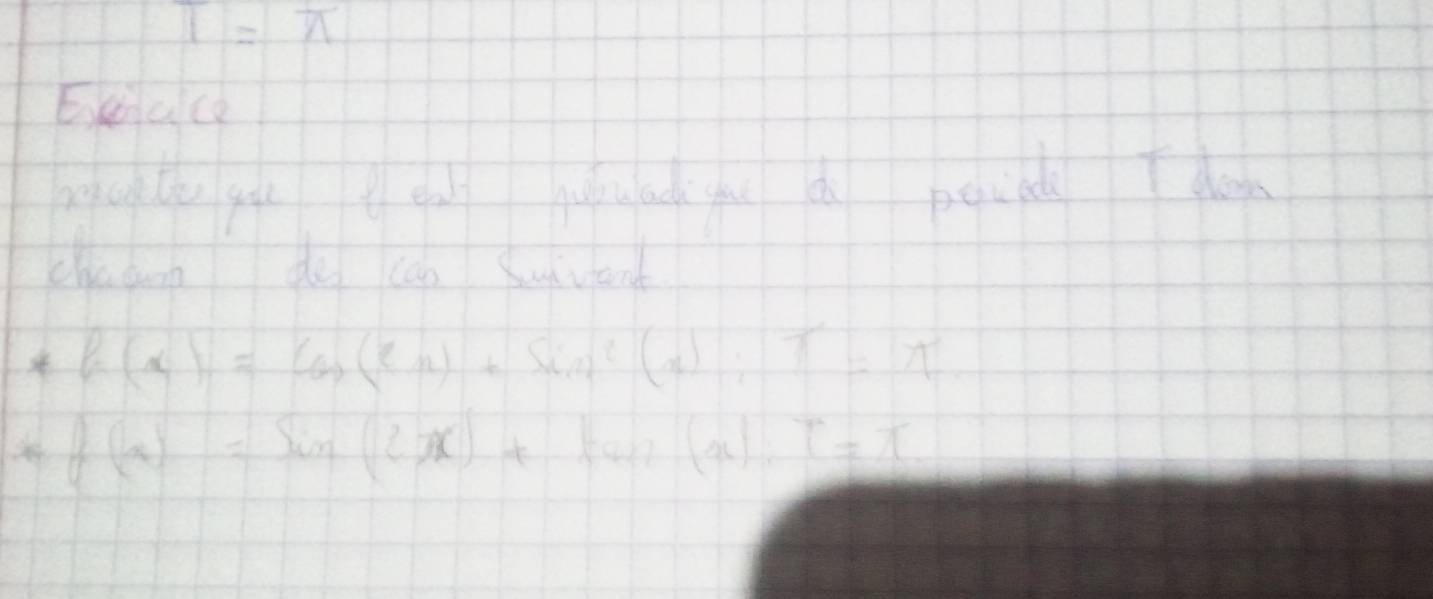 T = π
Exercice
montre que f est périodique de période T dans
chacun des cas suivant.
* f(x) = cos(2x) + sin²(x) ; T = π.
* f(x) = sin(2x) + tan(x). T = π.